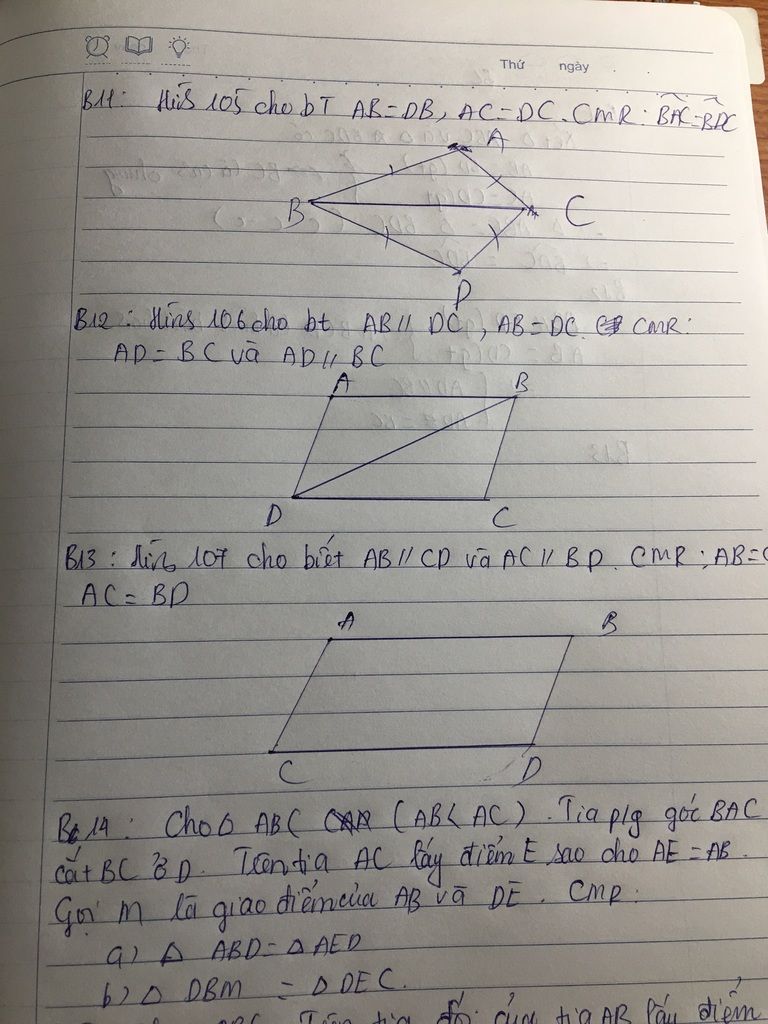 Thứ ngày
B11: Hình 105 cho bT AB=DB, AC=DC. CMR: BAC=BDC
A
B
C
D
B12: Hình 106 cho bt AB// DC, AB=DC. CMR:
AD=BC và AD// BC
A B
D C
B13: Hình 107 cho biết AB// CD và AC// BD. CMR: AB=C
AC=BD
A B
C D
B 14: Cho Δ ABC (AB<AC). Tia p/g góc BAC
cắt BC ở D. Trên tia AC lấy điểm E sao cho AE=AB.
Gọi M là giao điểm của AB và DE. CMR:
a) Δ ABD=Δ AED
b) Δ DBM = Δ DEC.
Trên tia đối của tia AB lấy điểm